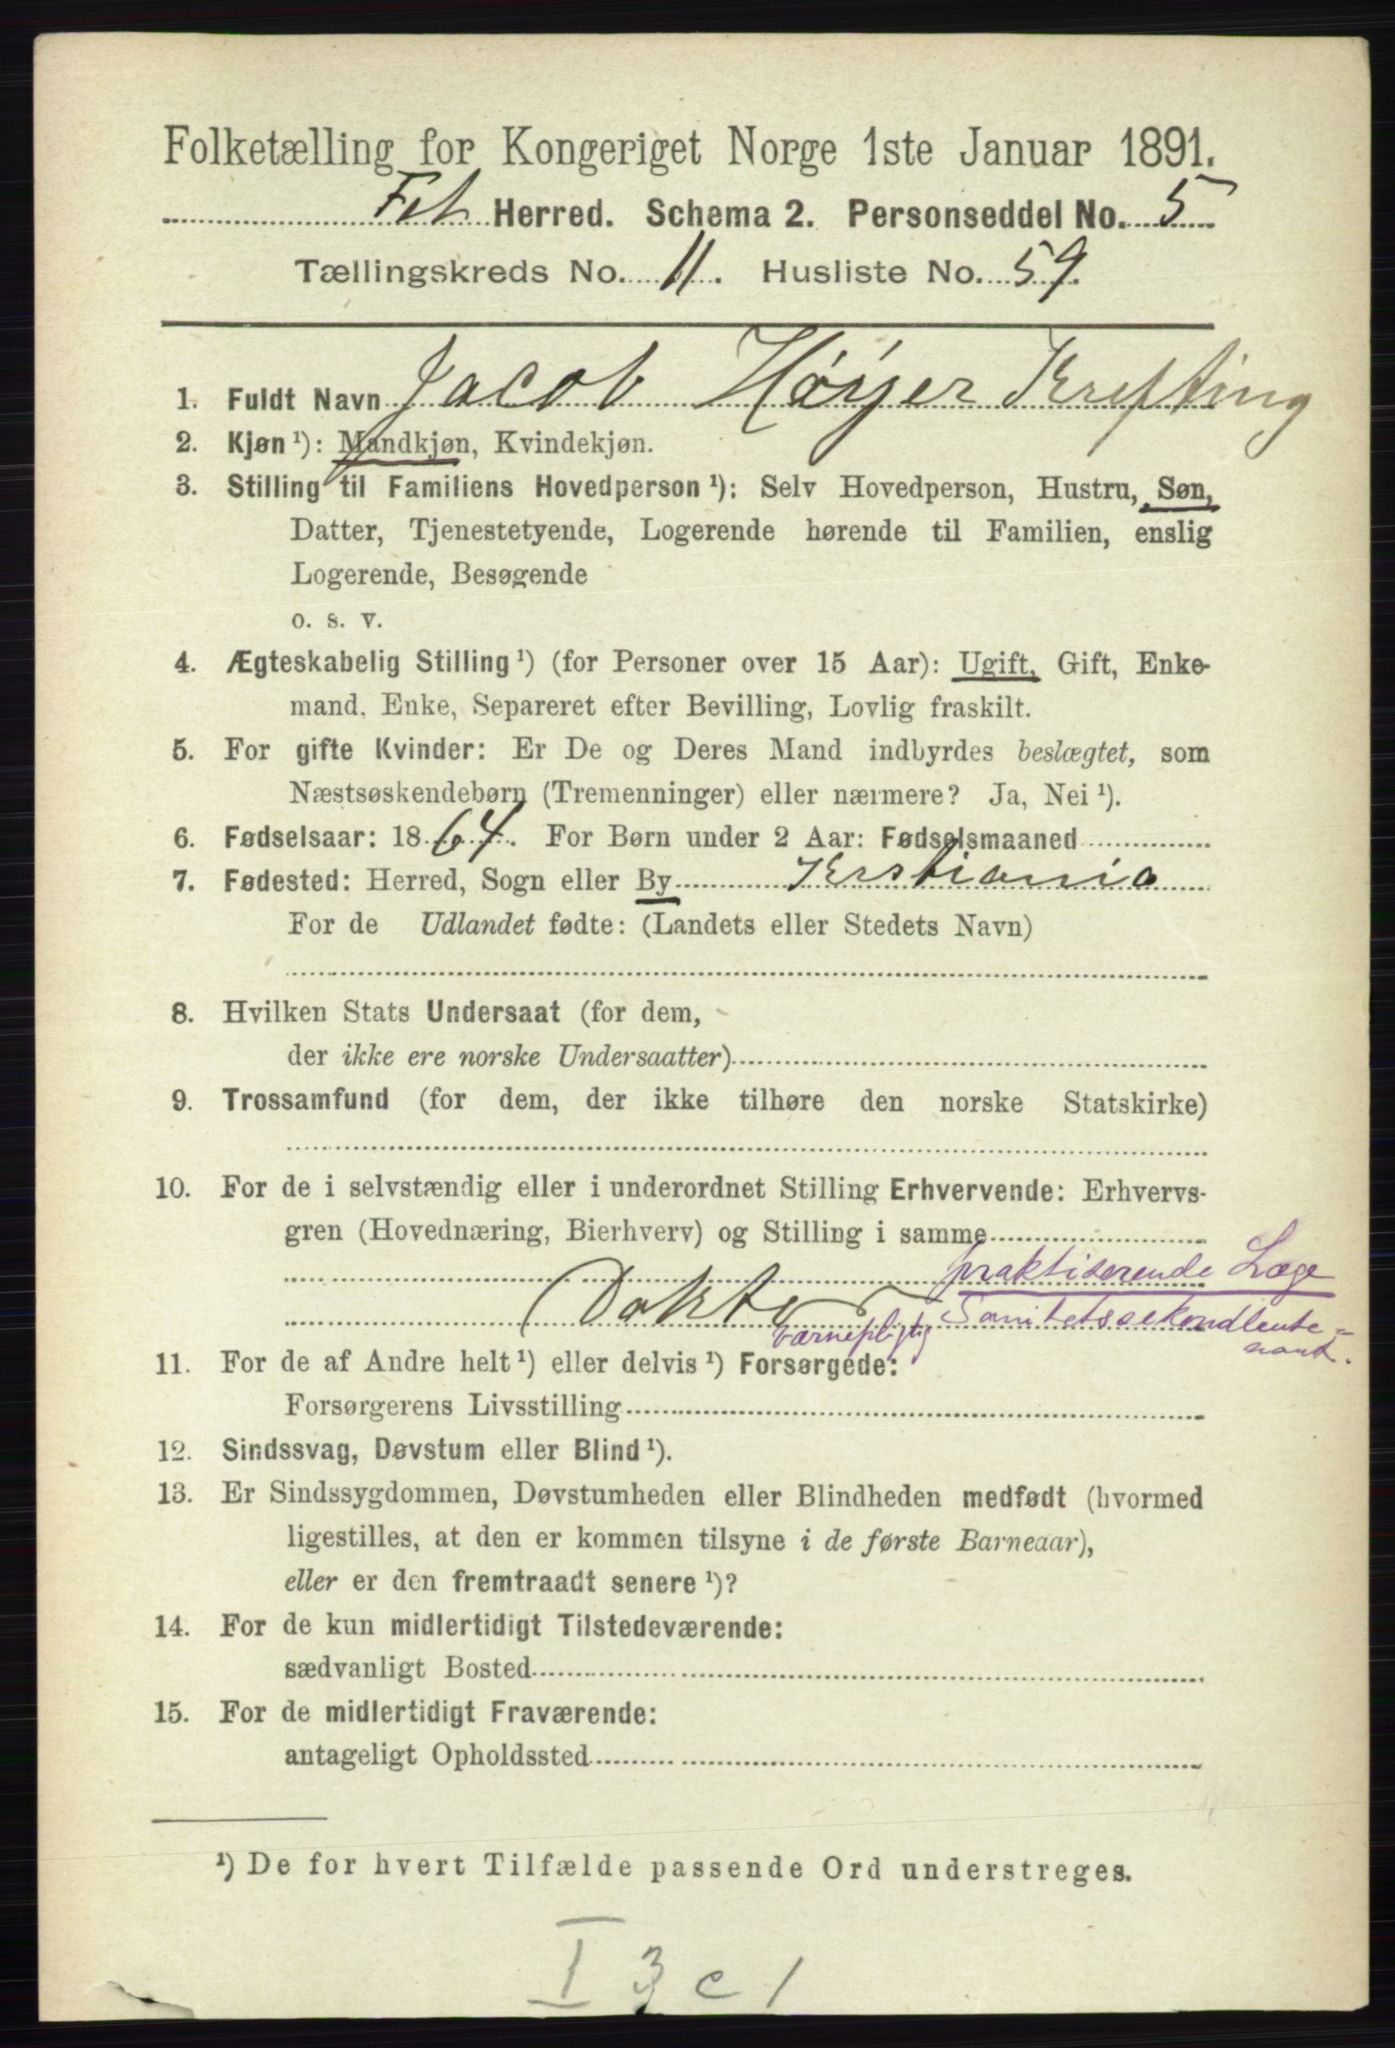 Folketælling for Kongeriget Norge 1ste Januar 1891.
Fet Herred. Schema 2. Personseddel No. 5
Tællingskreds No. 11. Husliste No. 59.
1. Fuldt Navn Jacob Høyer Krefting
2. Kjøn ¹): Mandkjøn, Kvindekjøn.
3. Stilling til Familiens Hovedperson ¹): Selv Hovedperson, Hustru, Søn,
Datter, Tjenestetyende, Logerende hørende til Familien, enslig
Logerende, Besøgende
o. s. v.
4. Ægteskabelig Stilling ¹) (for Personer over 15 Aar): Ugift, Gift, Enke-
mand, Enke, Separeret efter Bevilling, Lovlig fraskilt.
5. For gifte Kvinder: Er De og Deres Mand indbyrdes beslægtet, som
Næstsøskendebørn (Tremenninger) eller nærmere? Ja, Nei ¹).
6. Fødselsaar: 1864. For Børn under 2 Aar: Fødselsmaaned
7. Fødested: Herred, Sogn eller By Kristiania
For de Udlandet fødte: (Landets eller Stedets Navn)
8. Hvilken Stats Undersaat (for dem,
der ikke ere norske Undersaatter)
9. Trossamfund (for dem, der ikke tilhøre den norske Statskirke)
10. For de i selvstændig eller i underordnet Stilling Erhvervende: Erhvervs-
gren (Hovednæring, Bierhverv) og Stilling i samme
praktiserende Læge
Doktor
værnepligtig Sanitetssekondleute=
nant.
11. For de af Andre helt ¹) eller delvis ¹) Forsørgede:
Forsørgerens Livsstilling
12. Sindssvag, Døvstum eller Blind ¹).
13. Er Sindssygdommen, Døvstumheden eller Blindheden medfødt (hvormed
ligestilles, at den er kommen tilsyne i de første Barneaar),
eller er den fremtraadt senere ¹)?
14. For de kun midlertidigt Tilstedeværende:
sædvanligt Bosted
15. For de midlertidigt Fraværende:
antageligt Opholdssted
¹) De for hvert Tilfælde passende Ord understreges.
I 3 c 1